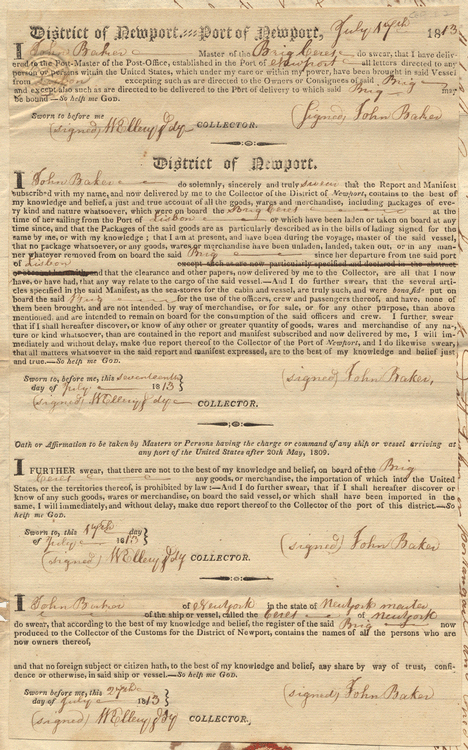 District of Newport, Port of Newport, July 17th 1813
I John Baker Master of the Brig Ceres do swear, that I have deliv-
ered to the Post-Master of the Post-Office, established in the Port of Newport all letters directed to any
person or persons within the United States, which under my care or within my power, have been brought in said Vessel
from Lisbon excepting such as are directed to the Owners or Consignees of said Brig
and except also such as are directed to be delivered to the Port of delivery to which said Brig may
be bound—So help me GOD.
Sworn to before me (Signed) John Baker
(signed) W Ellery COLLECTOR.
District of Newport.
I John Baker do solemnly, sincerely and truly swear that the Report and Manifest
subscribed with my name, and now delivered by me to the Collector of the District of Newport, contains to the best of
my knowledge and belief, a just and true account of all the goods, wares and merchandize, including packages of eve-
ry kind and nature whatsoever, which were on board the Brig Ceres at the
time of her sailing from the Port of Lisbon or which have been laden or taken on board at any
time since, and that the Packages of the said goods are as particularly described as in the bills of lading signed for the
same by me, or with my knowledge; that I am at present, and have been during the voyage, master of the said vessel,
that no package whatsoever, or any goods, wares or merchandize have been unladen, landed, taken out, or in any man-
ner whatever removed from on board the said Brig since her departure from the said port
of Lisbon except such as are now particularly specified and declared in the abstract
and that the clearance and other papers, now delivered by me to the Collector, are all that I now
have, or have had, that any way relate to the cargo of the said vessel.—And I do further swear, that the several arti-
cles specified in the said Manifest, as the sea-stores for the cabin and vessel, are truly such, and were bona fide put on
board the said Brig for the use of the officers, crew and passengers thereof, and have none of
them been brought, and are not intended, by way of merchandize, or for sale, or for any other purpose, than above
mentioned, and are intended to remain on board for the consumption of the said officers and crew. I further, swear
that if I shall hereafter discover, or know of any other or greater quantity of goods, wares and merchandize of any na-
ture or kind whatsoever, than are contained in the report and manifest subscribed and now delivered by me, I will im-
mediately and without delay, make due report thereof to the Collector of the Port of Newport, and I do likewise swear,
that all matters whatsoever in the said report and manifest expressed, are to the best of my knowledge and belief just
and true.—So help me GOD.
Sworn to, before me, this seventeenth
day of July 1813 (signed) John Baker,
(signed) W Ellery COLLECTOR.
Oath or Affirmation to be taken by Masters or Persons having the charge or command of any ship or vessel arriving at
any port of the United States after 20th May, 1809.
I FURTHER swear, that there are not to the best of my knowledge and belief, on board of the Brig
Ceres any goods, or merchandize, the importation of which into the United
States, or the territories thereof, is prohibited by law—And I do further swear, that if I shall hereafter discover or
know of any such goods, wares or merchandize, on board the said vessel, or which shall have been imported in the
same, I will immediately, and without delay, make due report thereof to the Collector of the port of this district—So
help me GOD.
Sworn to, this 17th day
of July 1813 (signed) John Baker
(signed) W Ellery COLLECTOR.
I John Baker of New York in the state of New York master
of the ship or vessel, called the Ceres of New York
do swear, that according to the best of my knowledge and belief, the register of the said Brig now
produced to the Collector of the Customs for the District of Newport, contains the names of all the persons who are
now owners thereof,
and that no foreign subject or citizen hath, to the best of my knowledge and belief, any share by way of trust, confi-
dence or otherwise, in said ship or vessel.—So help me GOD.
Sworn before me, this 27th
day of July 1813 (signed) John Baker
(signed) W Ellery COLLECTOR,